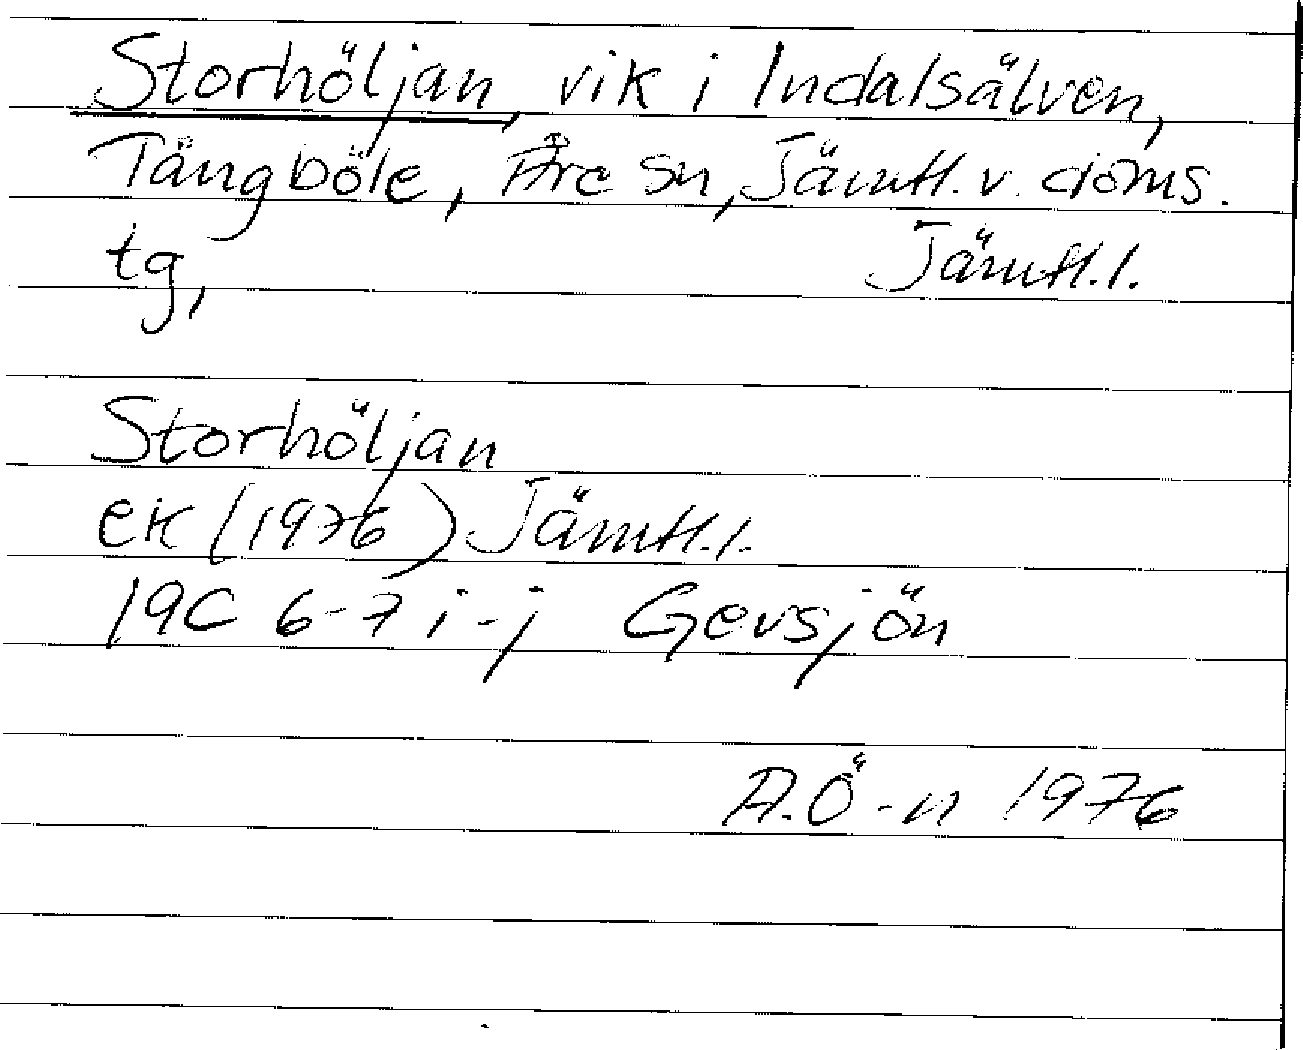 Storhöljan, vik i Indalsälven,
Tängböle, Åre sn, Jämtl. v. doms.
tg,
Jämtl. l.
Storhöljan
ek (1976) Jämtl. l.
19C 6-7 i-j Gevsjön
A.Ö-n 1976